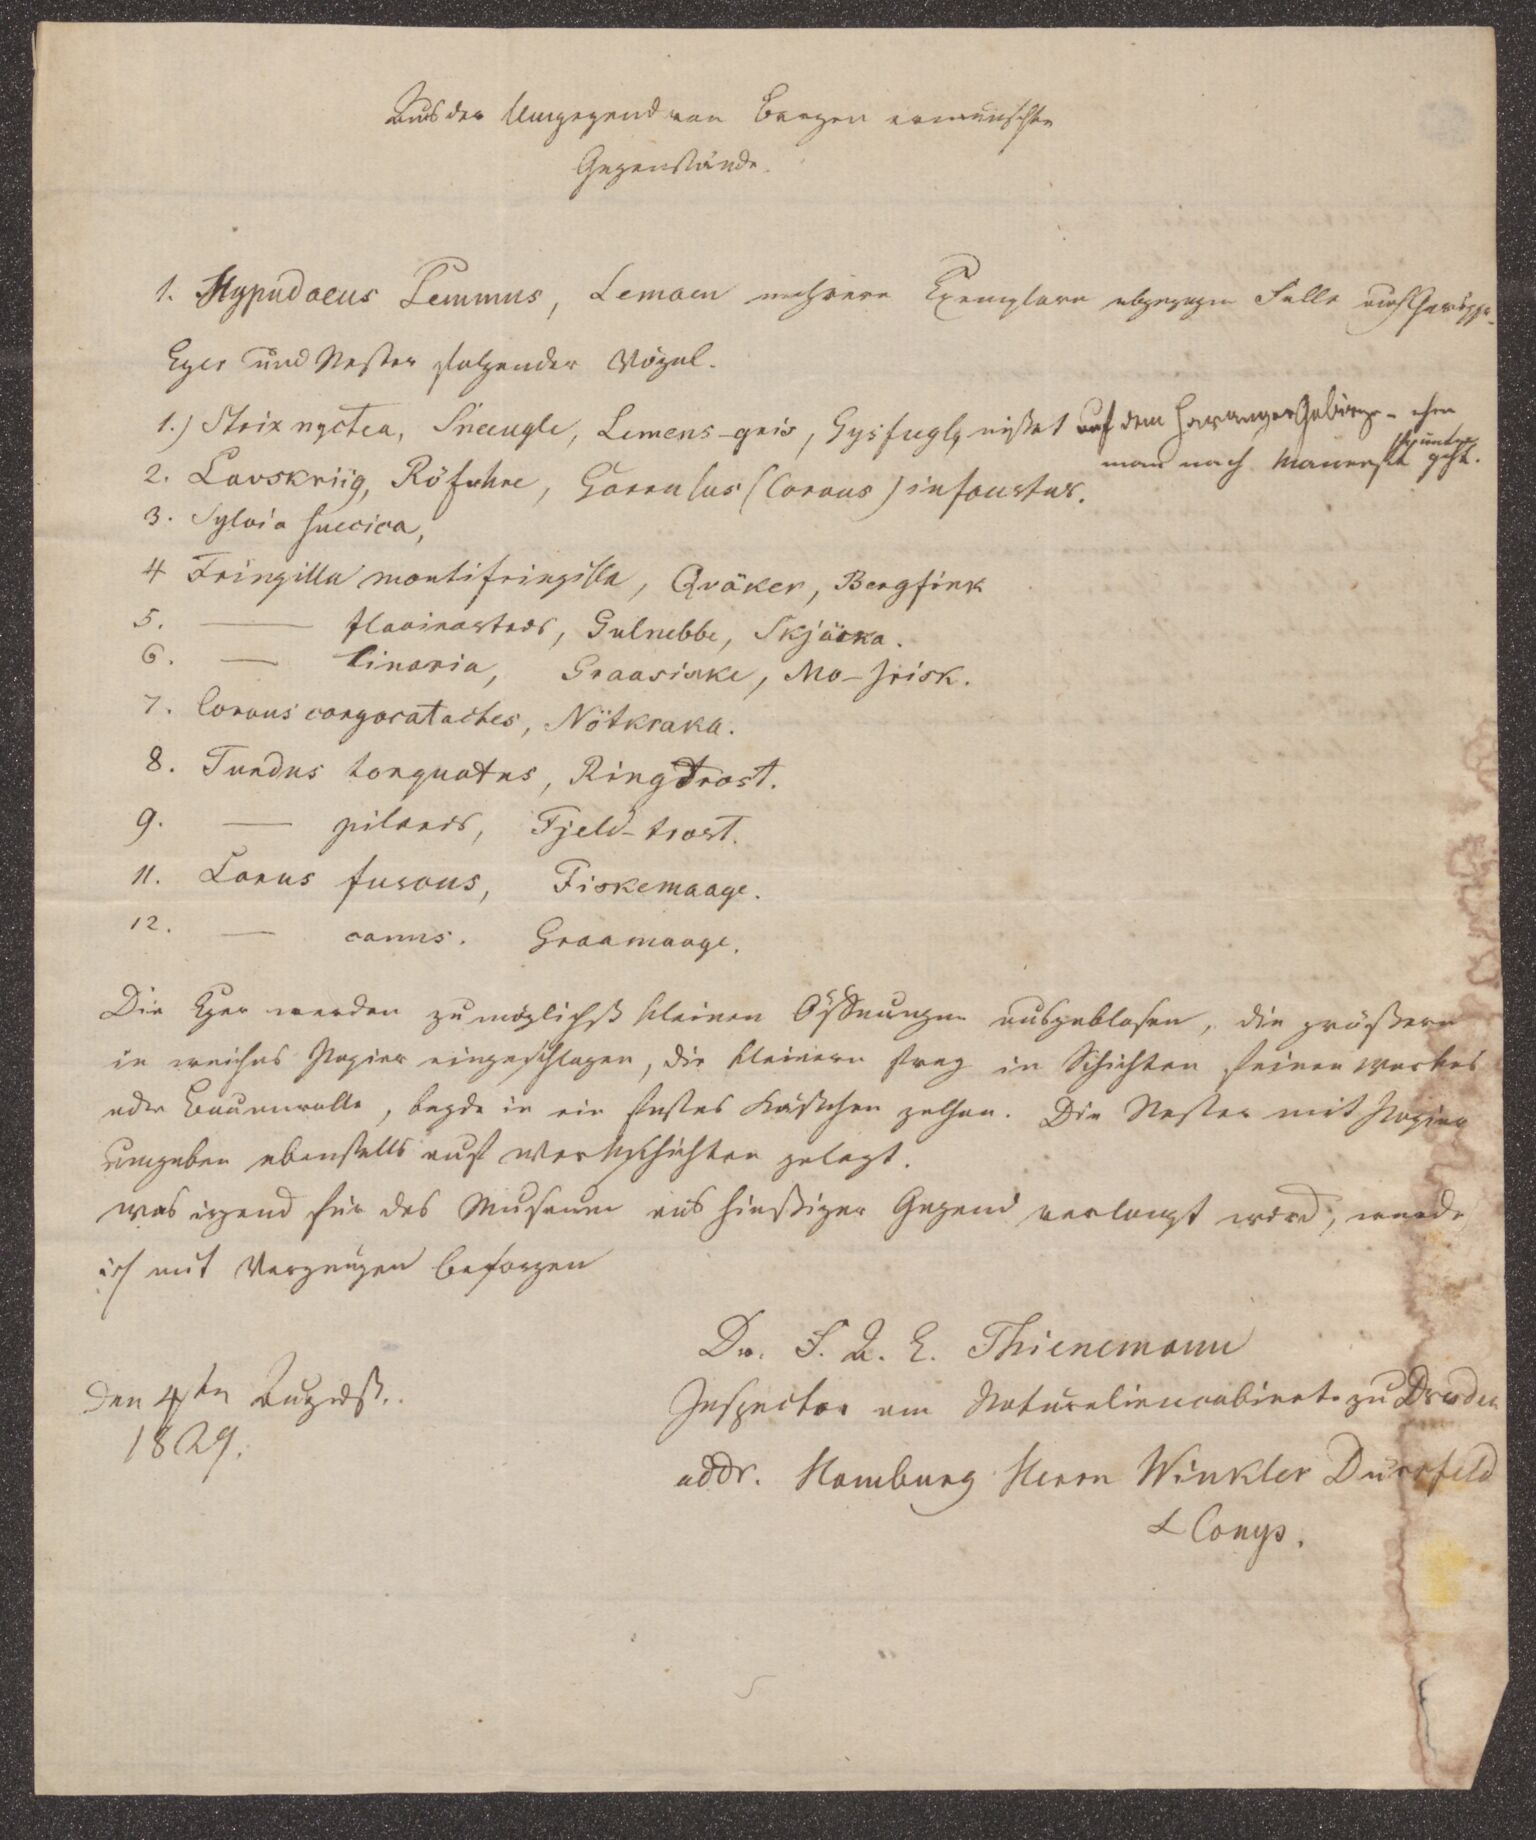 Aus der Umgegend von Bergen erwünschte
Gegenstände.
1. Hypudaeus Lemmus, Lemaen mehrere Exemplare abgezogen Felle auch Gerippe.
Eyer und Nester folgender Vögel.
1.) Strix nyctea, Sneeugle, Lemens-gris, Gysfugl, nistet auf dem Gebirge - ehe
man nach geht.
2. Lavskriig, Röfuhre, Garrulus (Corvus) infaustus.
3. Sylvia suecica,
4 Fringilla montifringilla, Qväker, Bergfink
5. —— flavirostris, Gulnebbe, Skjäcka.
6. — linaria, Graasicke, Mo-frisk.
7. Corvus caryocatactes, Nötkraka.
8. Turdus torquatus, Ringtrost.
9. — pilaris, Fjeld-trost.
11. Larus fuscus, Fiskemaage.
12. — canus. Graamaage.
Die Eyer werden zu möglichst kleinen Öffnungen ausgeblasen, die größern
in weiches Papier eingeschlagen, die kleinern frey in Schichten feinen Werkes
oder Baumwolle, beyde in ein festes Kästchen gethan. Die Nester mit Papier
umgeben ebenfalls auf Werkschichten gelegt.
Was irgend für das Museum aus hiesiger Gegend verlangt wird, werde
ich mit Vergnügen besorgen
Dr. F. A. L. Thienemann
Inspector am Naturaliencabinet zu Dresden
addr. Hamburg Herrn Winkler Durrfeld
& Comp.
den 4ten August.
1829.